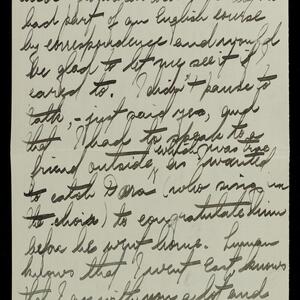 had part of an English course
by correspondence and would
be glad to let me see it if I
cared to. I didn't pause to
talk, - just said yes, and
that I had to speak to a
which was true
friend outside, as I wanted
to catch Dana (who sings in
the choir) to congratulate him
before he went home. Lyman
knows that I went East, knows